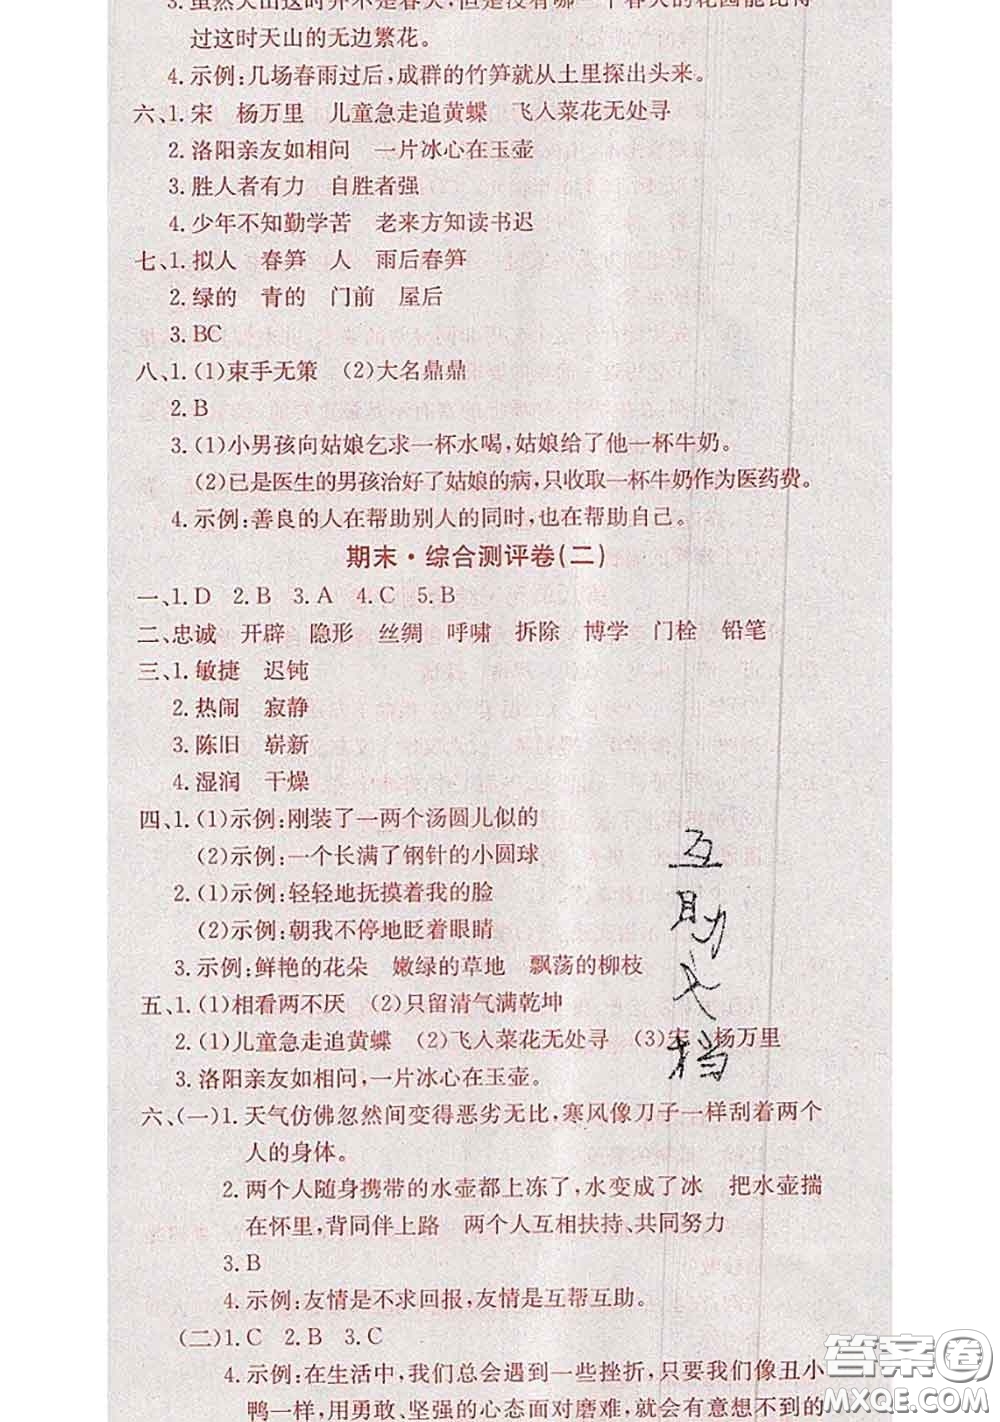 3. 虽然天山这时并不是春天,但是没有哪一个春天的花园能比得
过这时天山的无边繁花。
4. 示例:几场春雨过后,成群的竹笋就从土里探出头来。
六、1. 宋 杨万里 儿童急走追黄蝶 飞入菜花无处寻
2. 洛阳亲友如相问 一片冰心在玉壶
3. 胜人者有力 自胜者强
4. 少年不知勤学苦 老来方知读书迟
七、1. 拟人 春笋 人 雨后春笋
2. 绿的 青的 门前 屋后
3. BC
八、1. (1)束手无策 (2)大名鼎鼎
2. B
3. (1)小男孩向姑娘乞求一杯水喝,姑娘给了他一杯牛奶。
(2)已是医生的男孩治好了姑娘的病,只收取一杯牛奶作为医药费。
4. 示例:善良的人在帮助别人的同时,也在帮助自己。
期末·综合测评卷(二)
一、1. D 2. B 3. A 4. C 5. B
二、忠诚 开辟 隐形 丝绸 呼啸 拆除 博学 门栓 铅笔
三、1. 敏捷 迟钝
2. 热闹 寂静
3. 陈旧 崭新
4. 湿润 干燥
四、1. (1)示例:刚装了一两个汤圆儿似的
(2)示例:一个长满了钢针的小圆球
2. (1)示例:轻轻地抚摸着我的脸
(2)示例:朝我不停地眨着眼睛
3. 示例:鲜艳的花朵 嫩绿的草地 飘荡的柳枝
五、1. (1)相看两不厌 (2)只留清气满乾坤
2. (1)儿童急走追黄蝶 (2)飞入菜花无处寻 (3)宋 杨万里
3. 洛阳亲友如相问,一片冰心在玉壶。
六、(一)1. 天气仿佛忽然间变得恶劣无比,寒风像刀子一样刮着两个
人的身体。
2. 两个人随身携带的水壶都上冻了,水变成了冰 把水壶揣
在怀里,背同伴上路 两个人互相扶持、共同努力
3. B
4. 示例:友情是不求回报,友情是互帮互助。
(二)1. C 2. B 3. C
4. 示例:在生活中,我们总会遇到一些挫折,只要我们像丑小
鸭一样,用勇敢、坚强的心态面对磨难,就会有意想不到的
互
助
文
档
答案圈
MXQE.COM